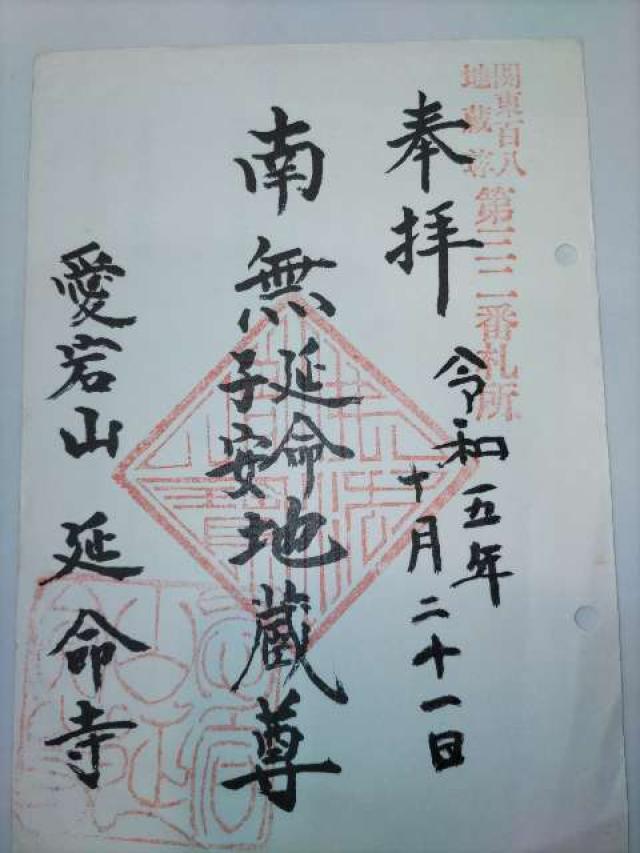 関東百八
地蔵尊
第三二番札所
奉拝
令和五年
十月二十一日
南無延命子安地蔵尊
愛宕山 延命寺